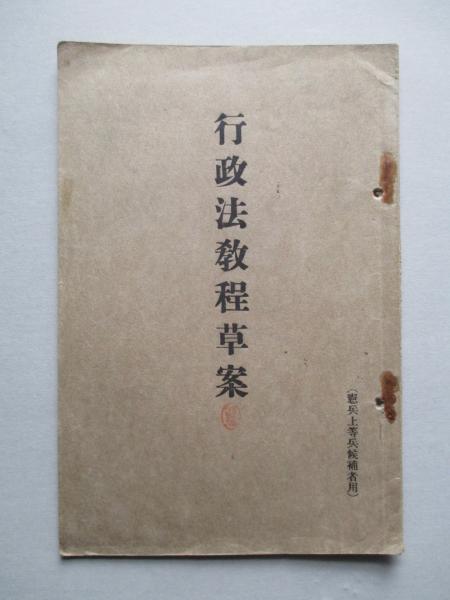 (憲兵上等兵候補者用)
行政法教程草案